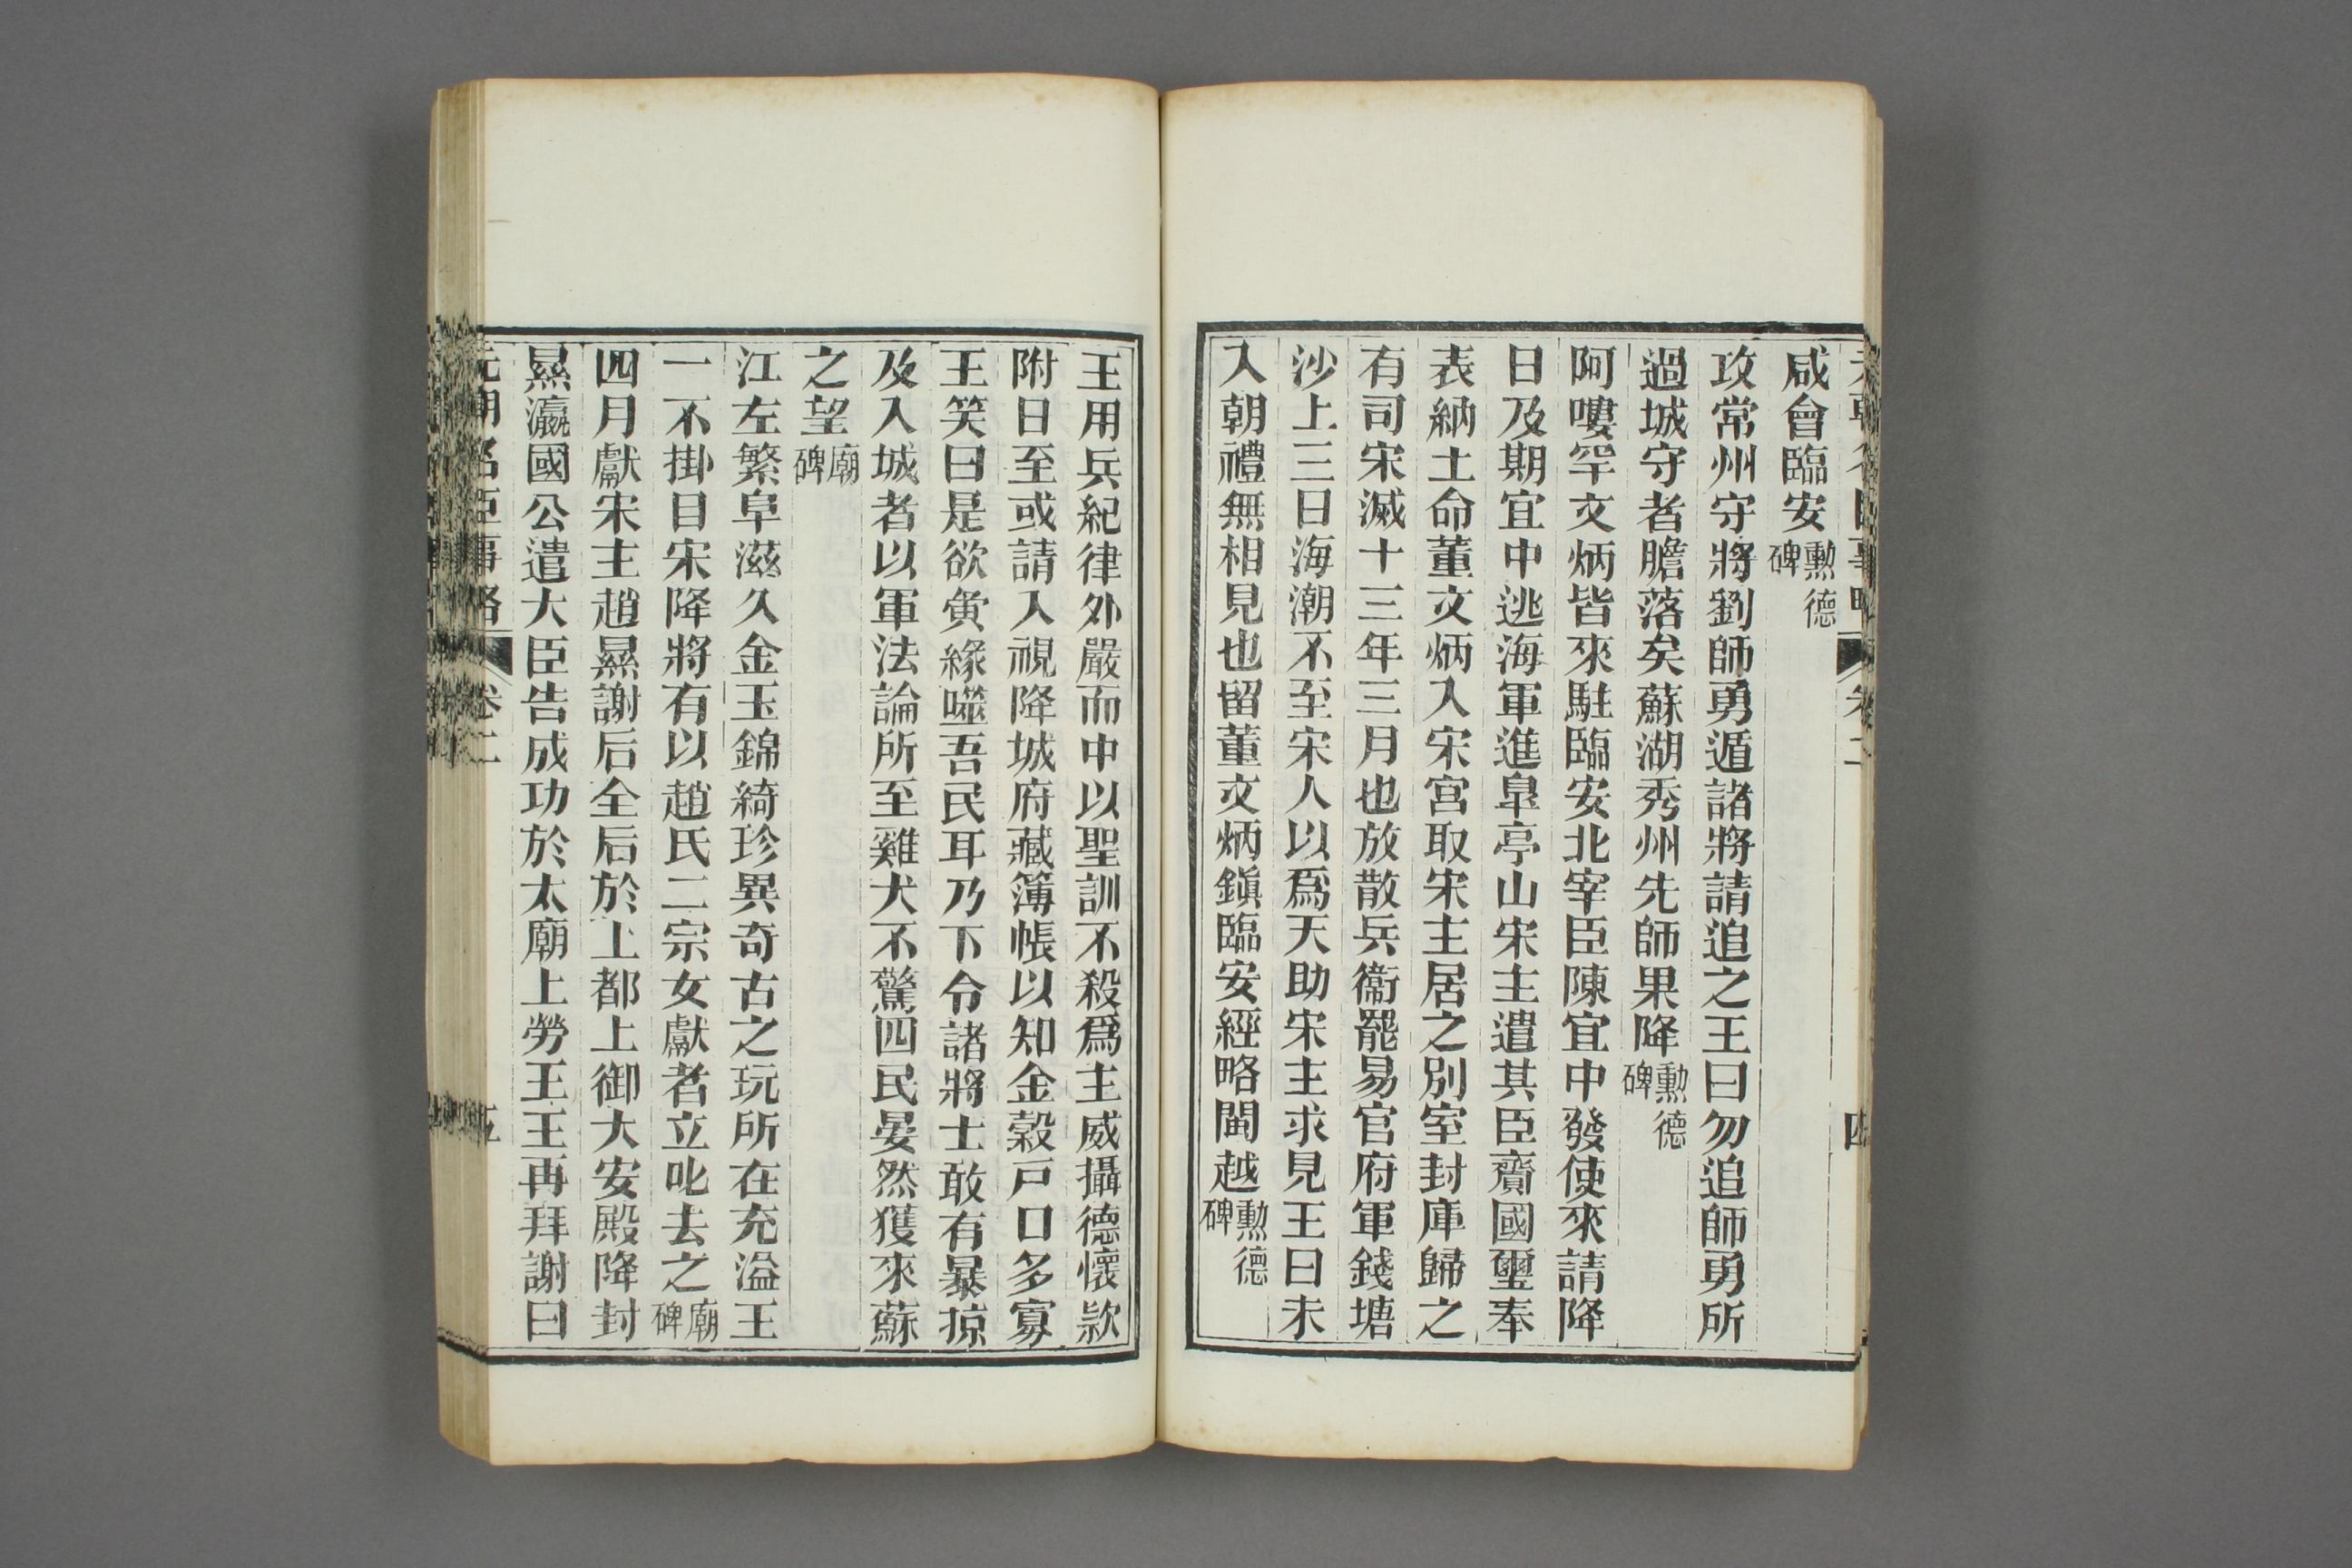 咸會臨安勲德碑
攻常州守將劉師勇遁諸將請追之王曰勿追師勇所
過城守者膽落矣蘇湖秀州先師果降勲德碑
阿嘍罕文炳皆來駐臨安北宰臣陳宜中發使來請降
日及期宜中逃海軍進臯亭山宋主遣其臣齎國璽奉
表納土命董文炳入宋宮取宋主居之別室封庫歸之
有司宋滅十三年三月也放散兵衞罷易官府軍錢塘
沙上三日海潮不至宋人以爲天助宋主求見王曰未
入朝禮無相見也留董文炳鎭臨安經略閩越勲德碑
王用兵紀律外嚴而中以聖訓不殺爲主威攝德懷款
附日至或請入視降城府藏簿帳以知金穀戸口多寡
王笑曰是欲夤緣噬吾民耳乃下令諸將士敢有暴掠
及入城者以軍法論所至雞犬不驚四民晏然獲來蘇
之望廟碑
江左繁阜滋久金玉錦綺珍異奇古之玩所在充溢王
一不掛目宋降將有以趙氏二宗女獻者立叱去之廟碑
四月獻宋主趙㬎謝后全后於上都上御大安殿降封
㬎瀛國公遣大臣告成功於太廟上勞王王再拜謝曰
元朝名臣事略 卷二 五